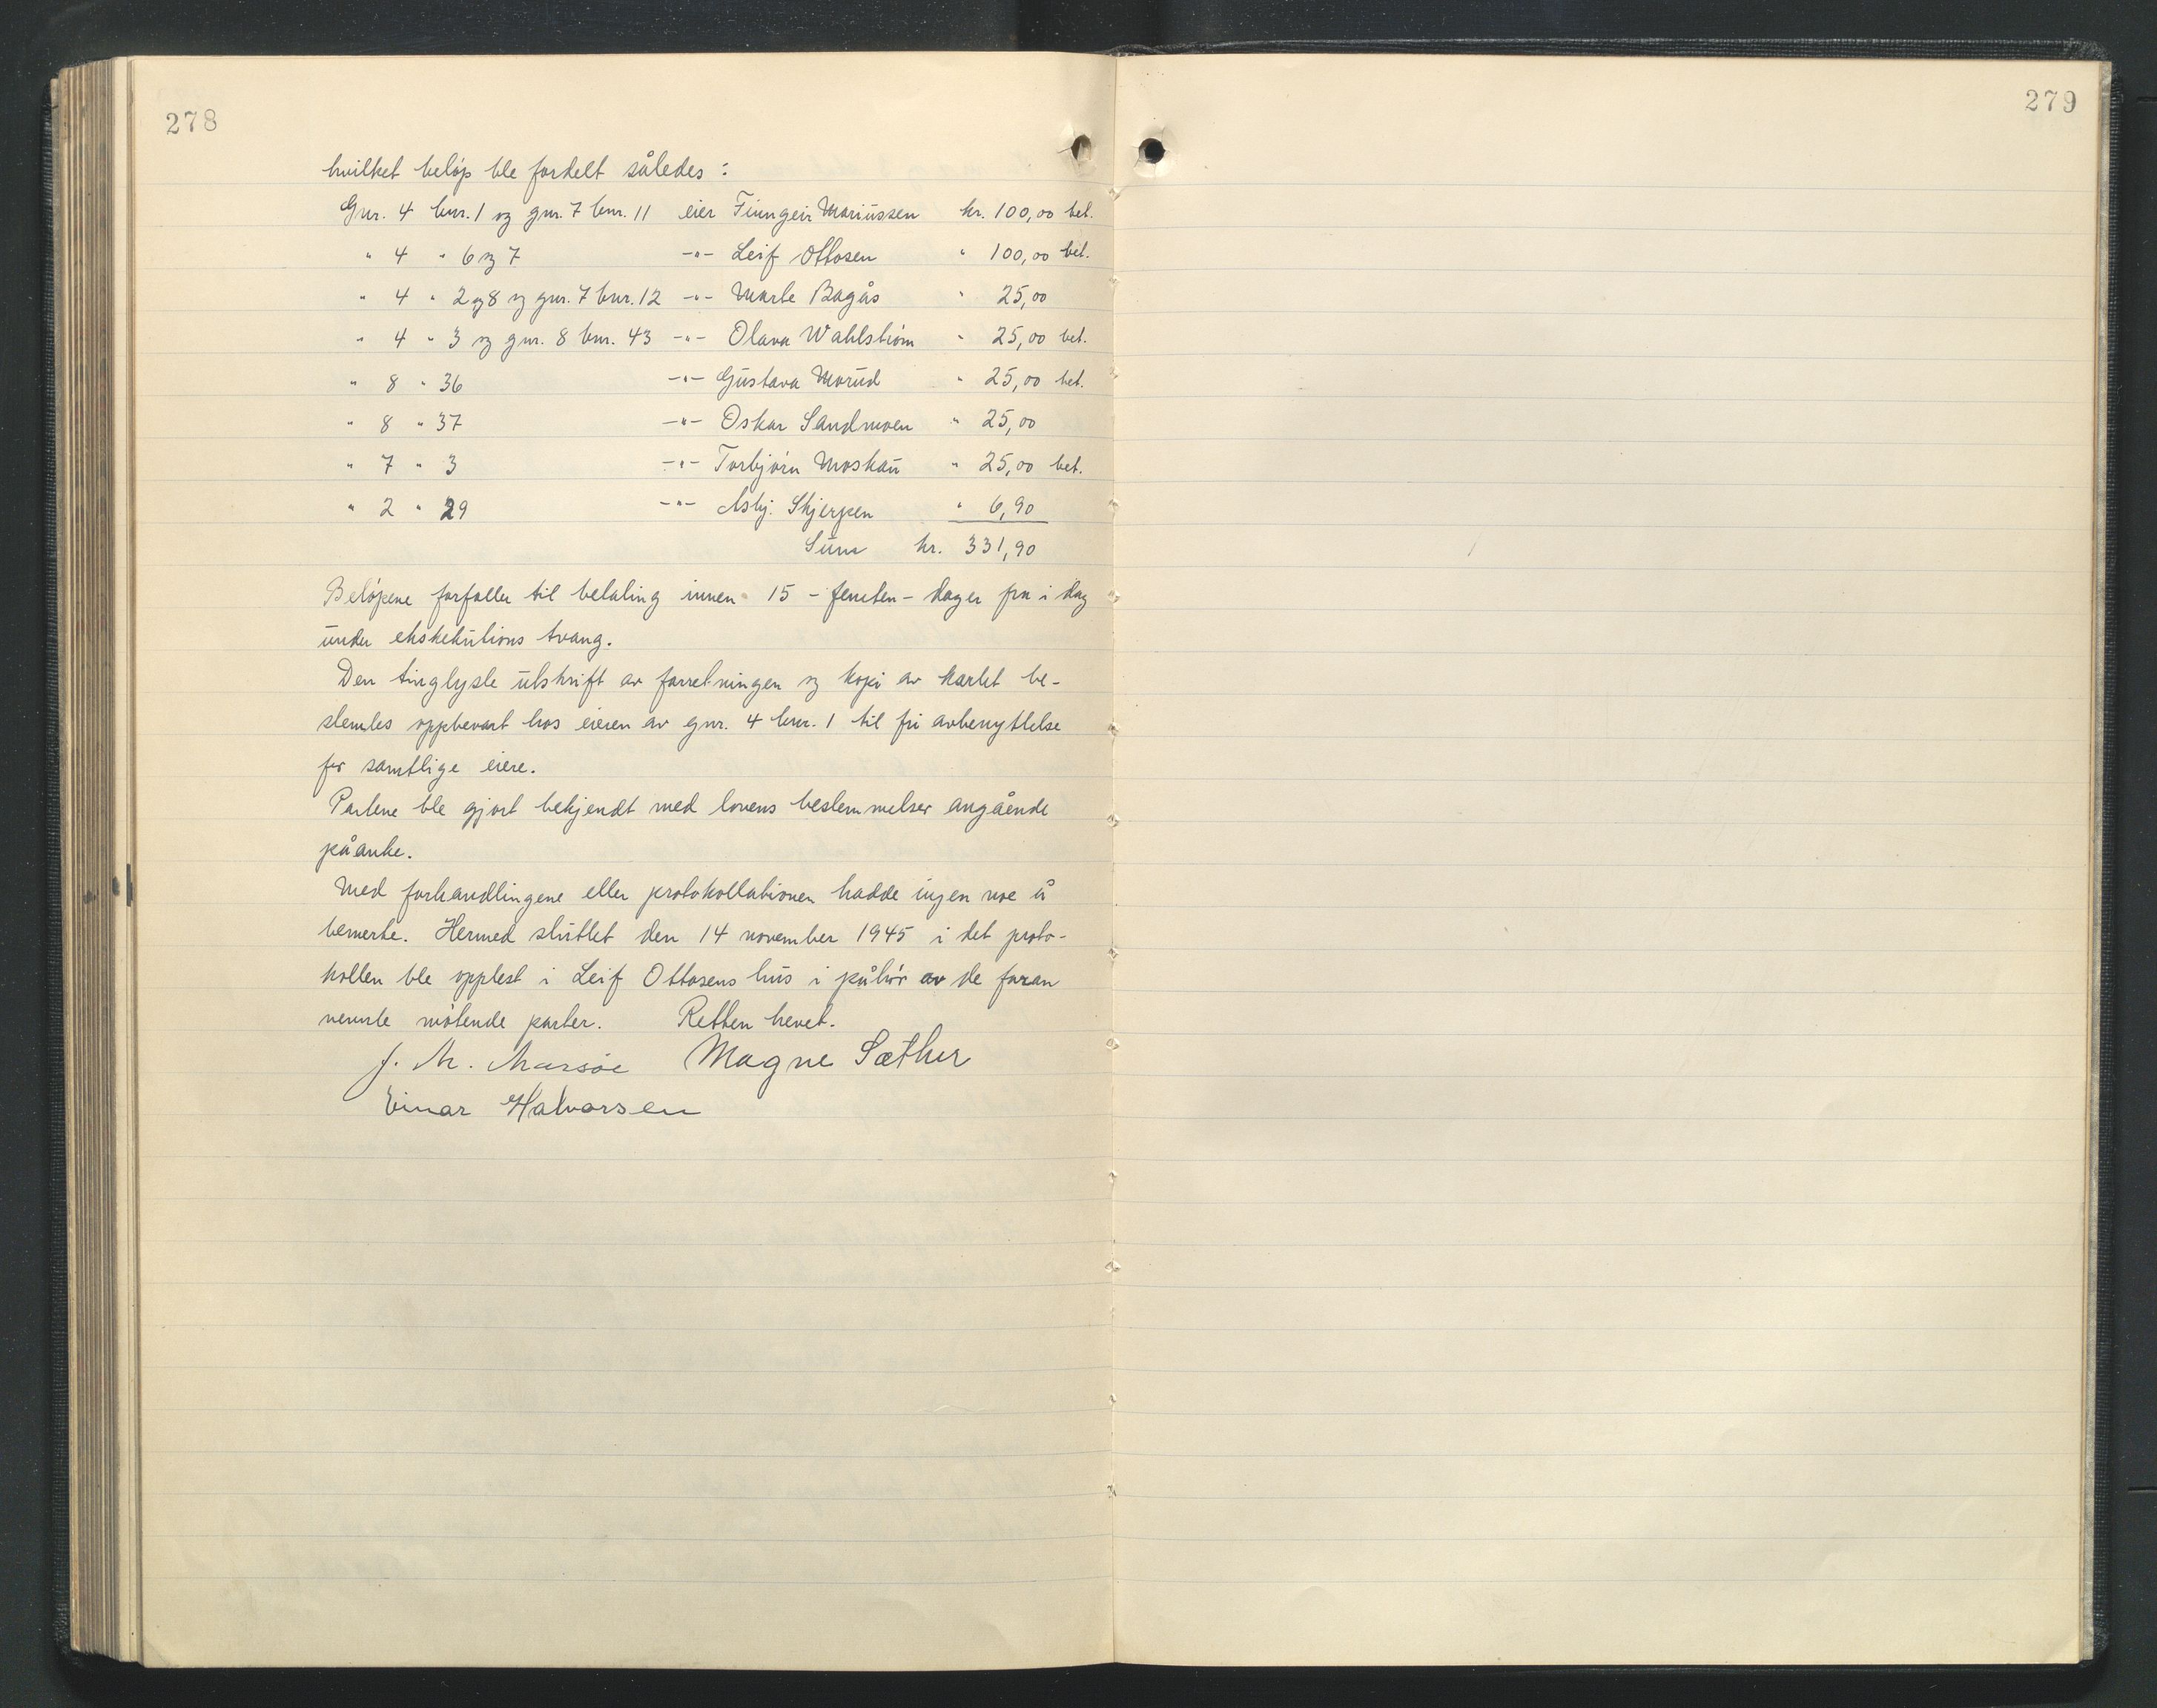 278
279
hvilket beløp ble fordelt således :
Gnr. 4 bnr. 1 og gnr. 7 bnr. 11 eier Finngeir Mariussen kr. 100,00 bet.
" 4 " 6 og 7 -"- Leif Ottosen " 100,00 bet.
" 4 " 2 og 8 og gnr. 7 bnr. 12 -"- Marte Bagås " 25,00
" 4 " 3 og gnr. 8 bnr. 43 -"- Olava Wahlstrøm " 25,00 bet.
" 8 " 36 -"- Gustava Morud " 25,00 bet.
" 8 " 37 -"- Oskar Sandmoen " 25,00
" 7 " 3 -"- Torbjørn Moskau " 25,00 bet.
" 2 " 29 -"- Asbj. Skjerpen " 6,90
Sum kr. 331,90
Beløpene forfaller til betaling innen 15 - femten - dager fra i dag
under ekskekutions tvang.
Den tinglyste utskrift av forretningen og kopi av kartet be-
stemtes oppbevart hos eieren av gnr. 4 bnr. 1 til fri avbenyttelse
for samtlige eiere.
Partene ble gjort bekjendt med lovens bestemmelser angående
påanke.
Med forhandlingene eller protokollationen hadde ingen noe å
bemerke. Hermed sluttet den 14 november 1945 i det proto-
kollen ble opplest i Leif Ottosens hus i påhør av de foran
nevnte møtende parter. Retten hevet.
J. M. Magne Sæther
Einar Halvorsen